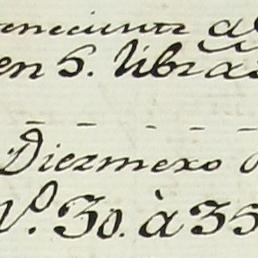 teneciente a
en 6. libras
Diezmero
Nº. 30. à 35